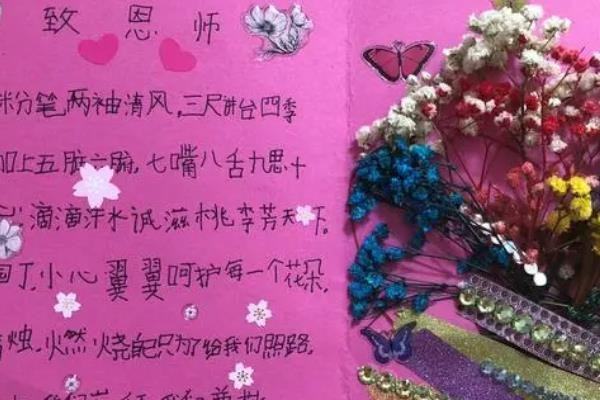 致恩师
粉笔,两袖清风,三尺讲台四季
加上五脏六腑,七嘴八舌九思十
滴滴汗水诚滋桃李芳天下。
园丁,小心翼翼呵护每一个花朵,
烛,火然烧自己只为了给我们照路,